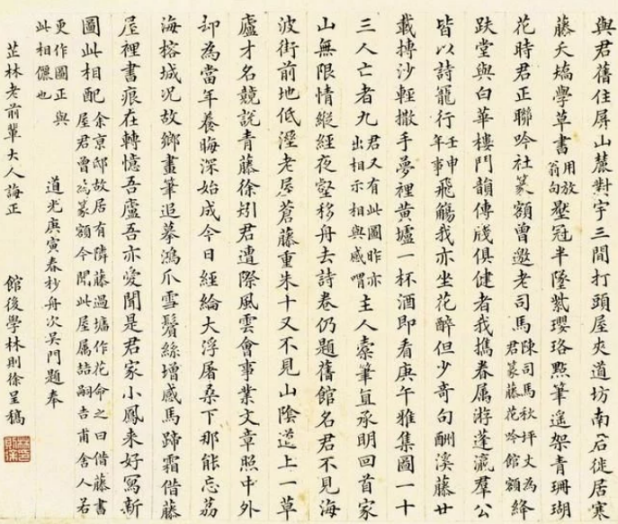 與君舊住屏山麓對宇三間打頭屋夾道坊南君徙居寒
藤夭矯學草書用放翁句壓冠半墜紫瓔珞點筆遙架青珊瑚
花時君正聯吟社篆額曾邀老司馬陳司馬秋坪丈為君篆藤花吟館額絳
趺堂與白華樓門韻傳牋俱健者我攜眷屬游蓬瀛羣公
皆以詩寵行壬申年事飛觴我亦坐花醉但少奇句酬溪藤廿
載摶沙輕撒手夢裡黃壚一杯酒即看庚午雅集圖一十
三人亡者九君又有此圖昨亦出相示相與感喟主人橐筆直承明回首家
山無限情縱經夜壑移舟去詩卷仍題舊館名君不見海
波街前地低溼老屋蒼藤重朱十又不見山陰道上一草
廬才名競說青藤徐矧君遭際風雲會事業文章照中外
却為當年養晦深始成今日經綸大浮屠桑下那能忘荔
海榕城況故鄉畫筆追摹鴻爪雪鬢絲增感馬蹄霜借藤
屋裡書痕在轉憶吾廬吾亦愛聞是君家小鳳來好寫新
圖此相配余京邸故居有隣藤過墻作花命之曰借藤書屋君曾為篆額今聞此屋屬喆嗣吉甫舍人若
更作圖正與此相儷也
道光庚寅春杪舟次吳門題奉
芷林老前輩大人誨正
館後學林則徐呈稿